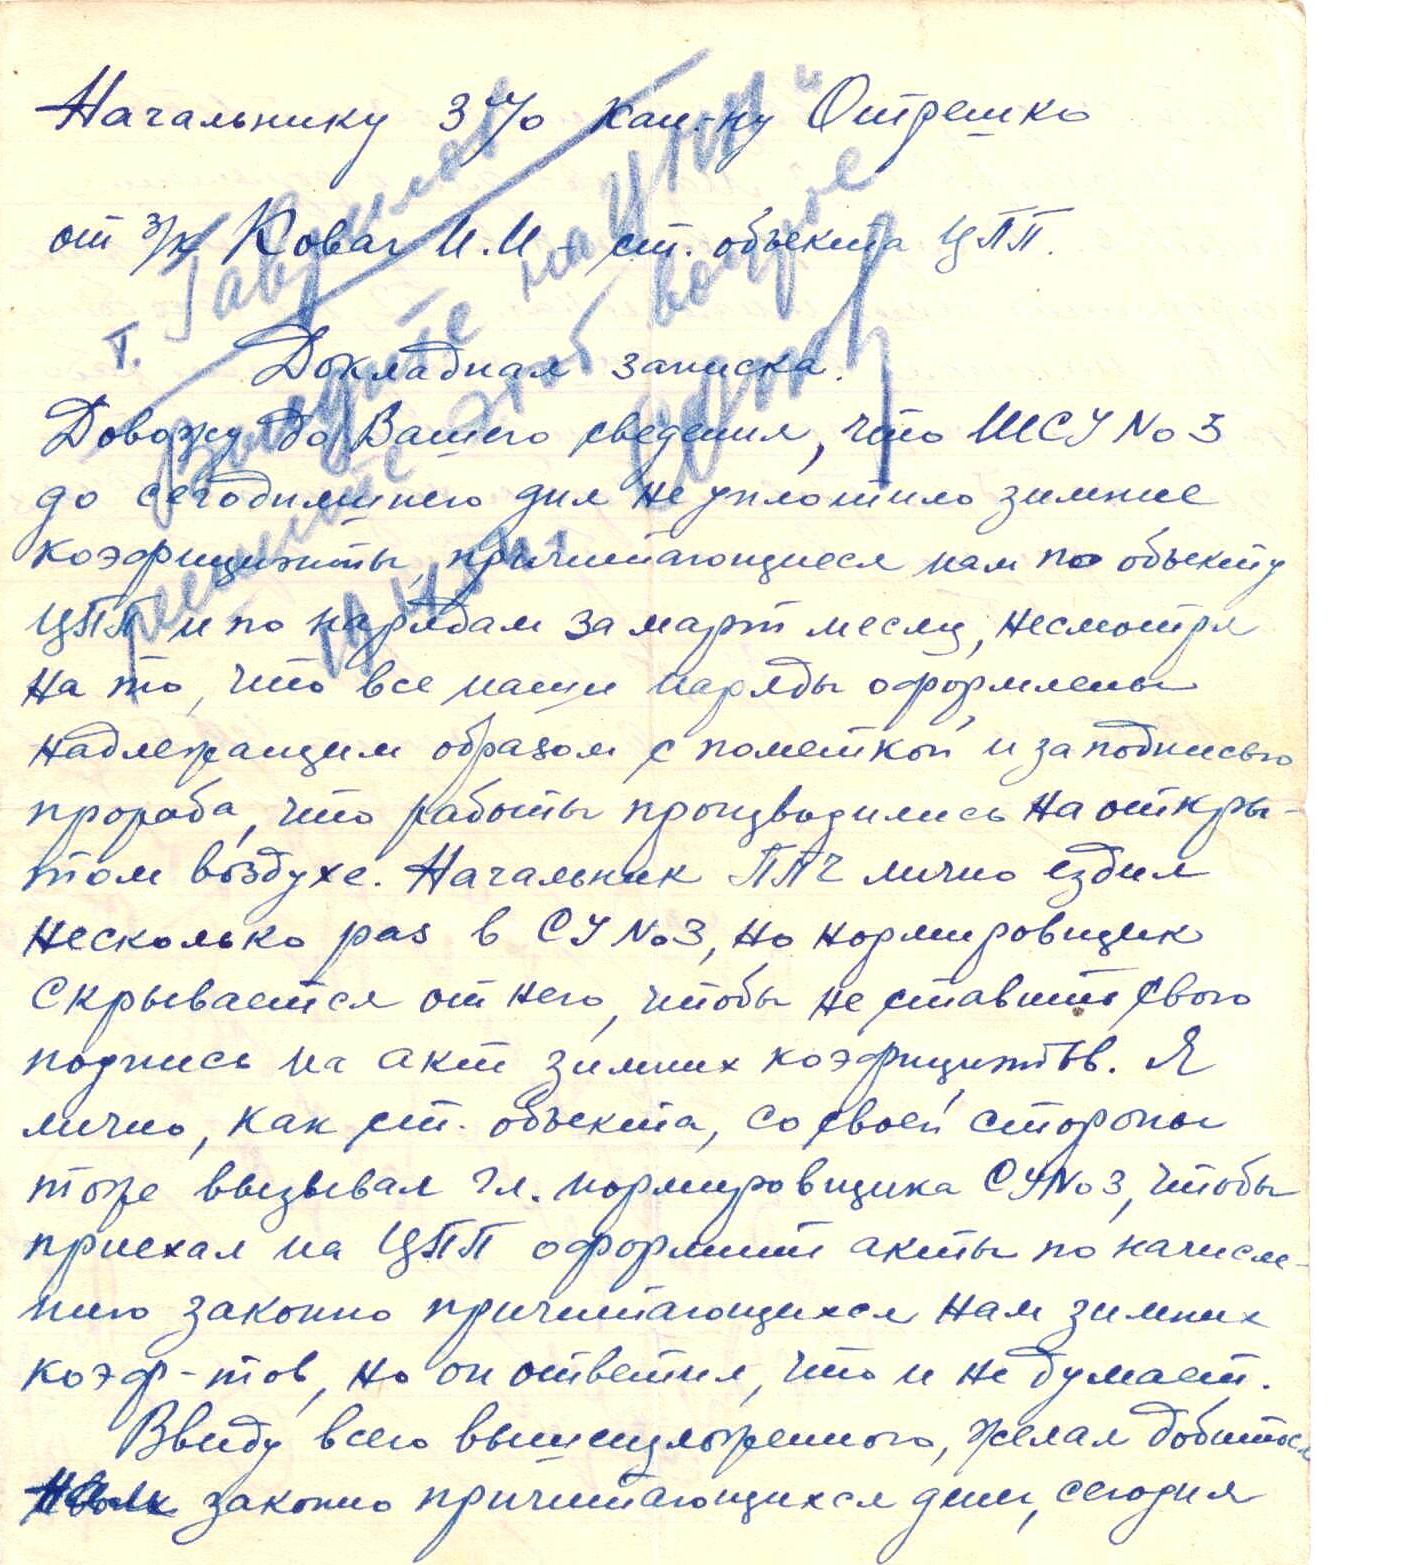 Начальнику 3 л/о кап-ну Отрешко
от з/к Ковач И.И - ст. объекта ЦПП.
Докладная записка.
Довожу до Вашего сведения, что ШСУ No 3
до сегодняшнего дня не уплотило зимние
коэфициэнты, причитающиеся нам по объекту
ЦПП и по нарядам за март месяц, несмотря
на то, что все наши наряды оформлены
надлежащим образом с пометкой и за подписью
прораба, что работы производились на откры-
том воздухе. Начальник ППЧ лично ездил
несколько раз в СУ No3, но нормировщик
скрывается от него, чтобы не ставить свою
подпись на акт зимних коэфициэнтов. Я
лично, как ст. объекта, со своей стороны
тоже вызывал гл. нормировщика СУ No3, чтобы
приехал на ЦПП оформить акты по начисле-
нию законно причитающихся нам зимних
коэф-тов, но он ответил, что и не думает.
Ввиду всего вышеизложенного, желая добиться
законно причитающихся денег, сегодня
т. Гаврилов
на ЦПП
решите этот вопрос